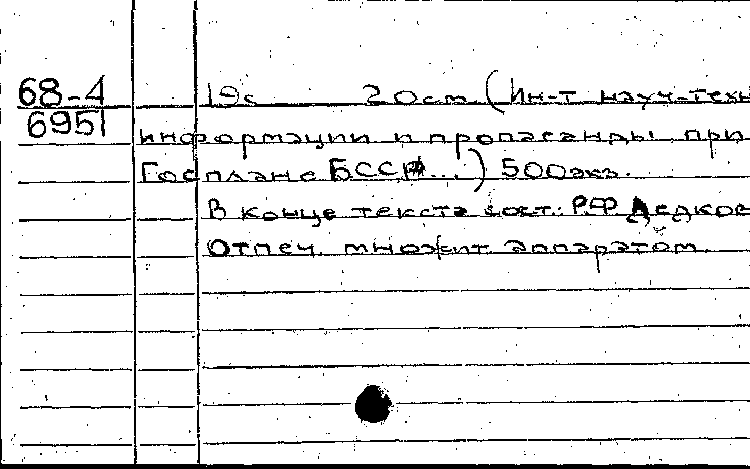 68-4
6951
19с 20см. (Ин-т науч-техн
информации и пропаганды при
Госплане БССР...) 500экз.
В конце текста сост.: Р.Ф Дедков
Отпеч. множит аппаратом